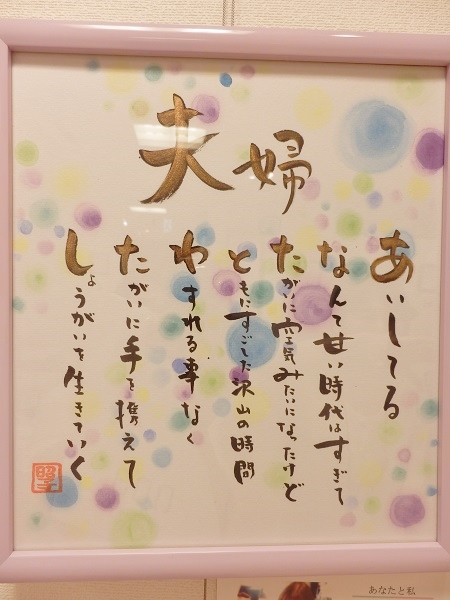 夫婦
あいしてる
なんて甘い時代はすぎて
たがいに空気みたいになったけど
ともにすごした沢山の時間
わすれる事なく
たがいに手を携えて
しょうがいを生きていく
あなたと私